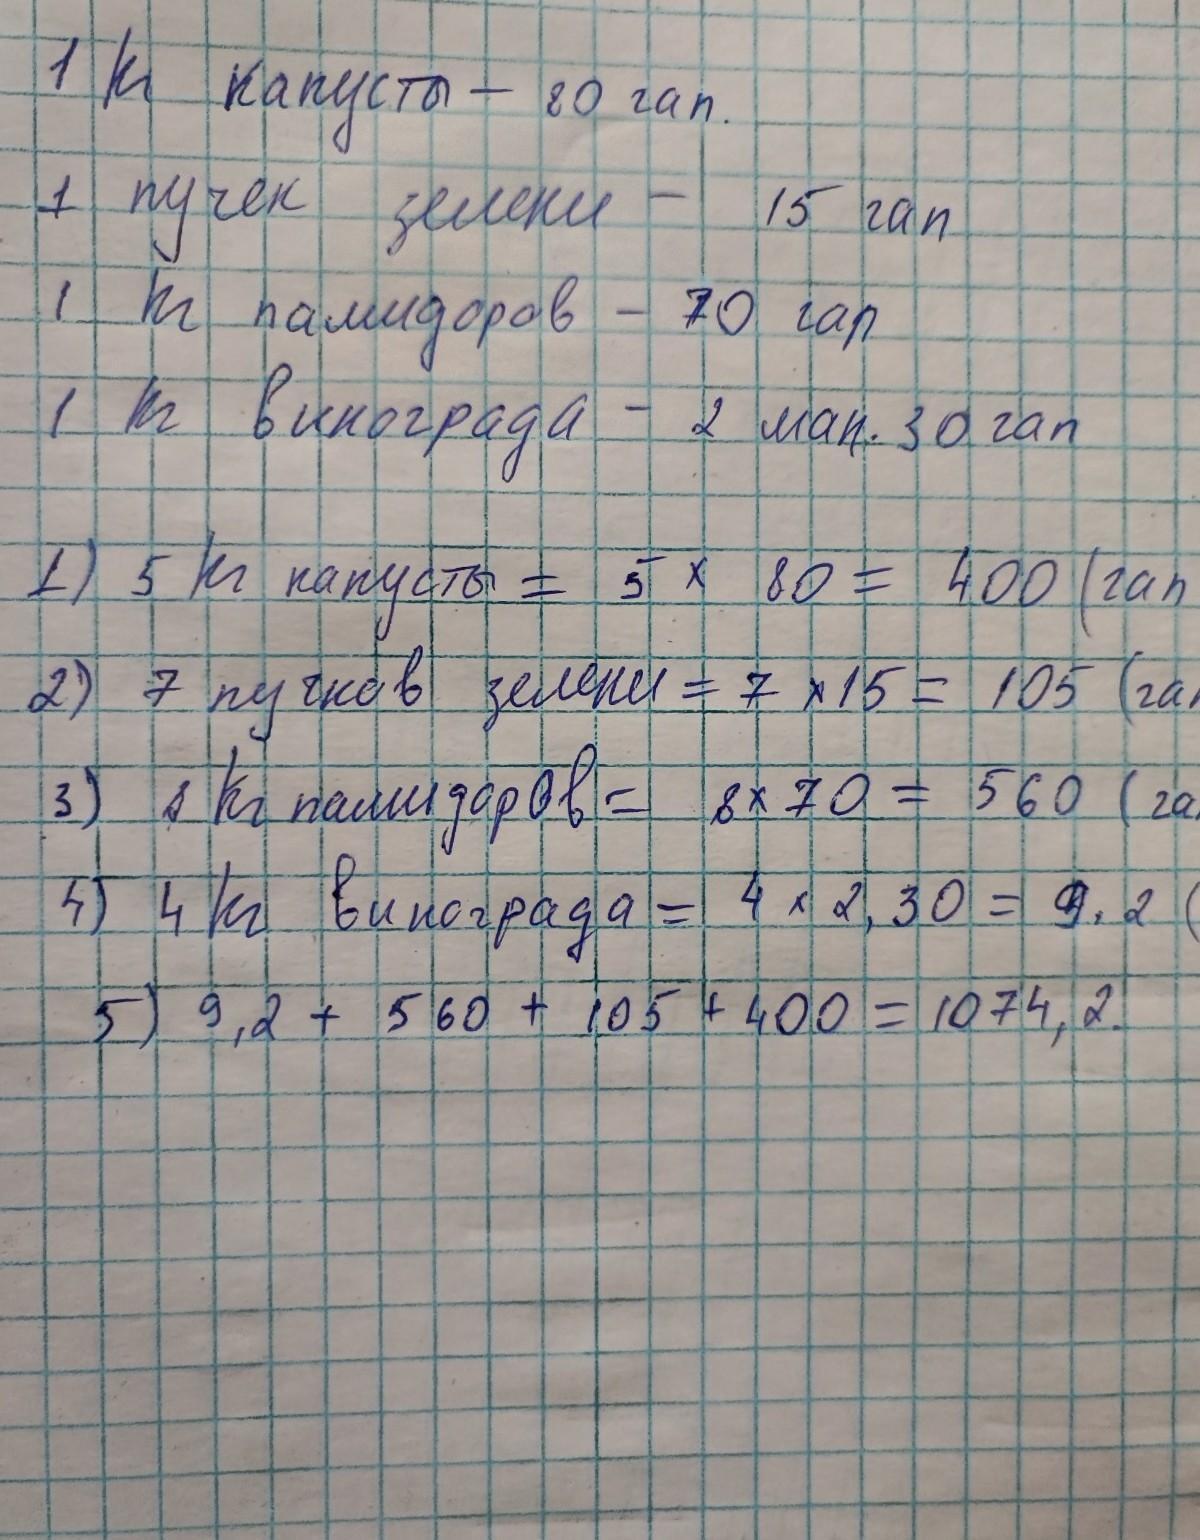 1 кг капусты - 80 гап.
1 пучек зелени - 15 гап
1 кг памидоров - 70 гап
1 кг винограда - 2 ман. 30 гап
1) 5 кг капусты = 5 x 80 = 400 (гап
2) 7 пучков зелени = 7 x 15 = 105 (гап
3) 8 кг памидоров = 8 x 70 = 560 (га
4) 4 кг винограда = 4 x 2,30 = 9.2 (
5) 9,2 + 560 + 105 + 400 = 1074, 2.